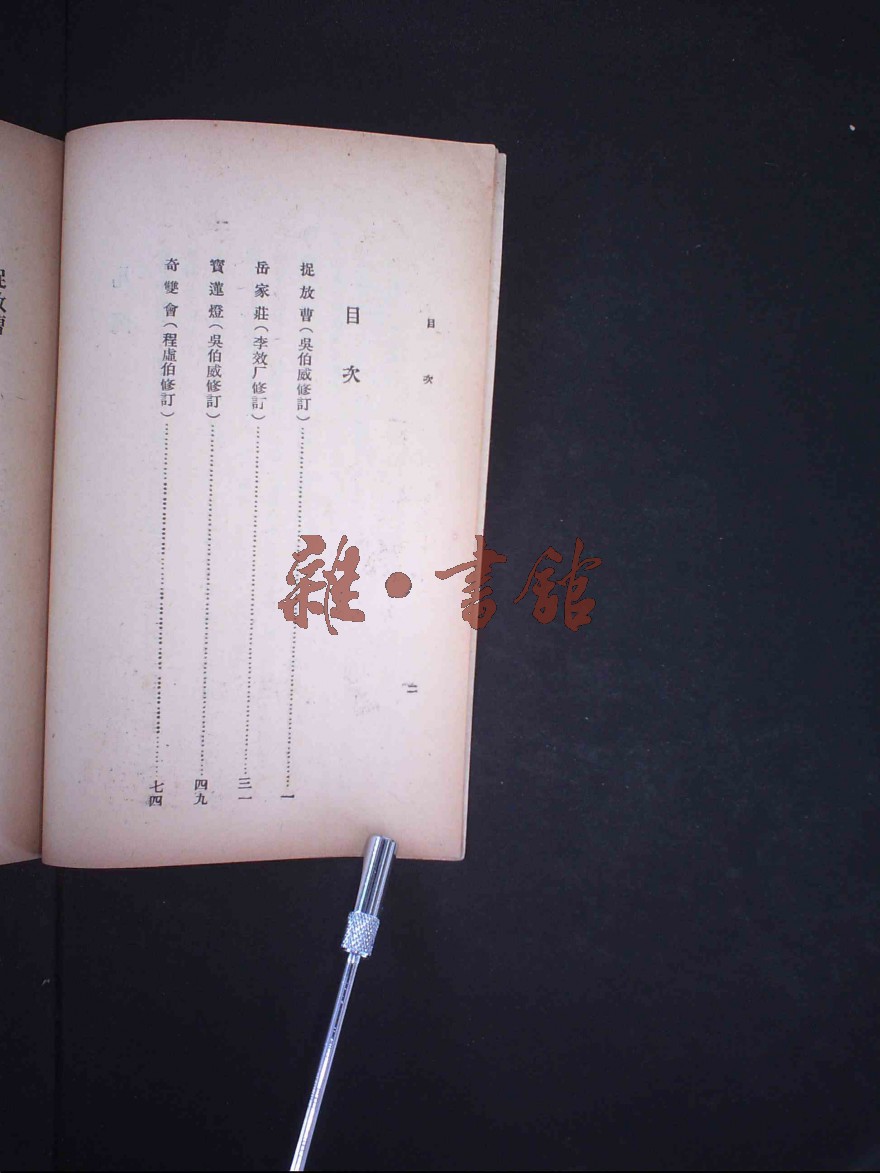 目次
二
目次
捉放曹（吳伯威修訂）……一
岳家莊（李效厂修訂）……三一
寶蓮燈（吳伯威修訂）……四九
奇雙會（程虛伯修訂）……七四
雜·書館